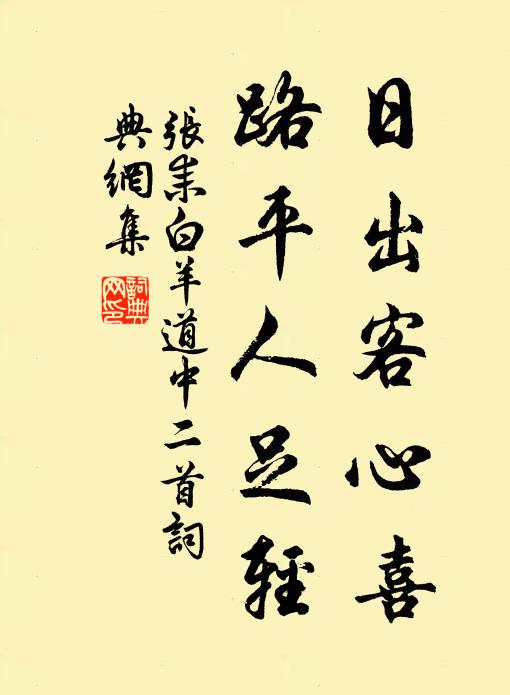 日出客心喜
路平人足輕
張耒白羊道中二首詞
典網集
詞典
网印